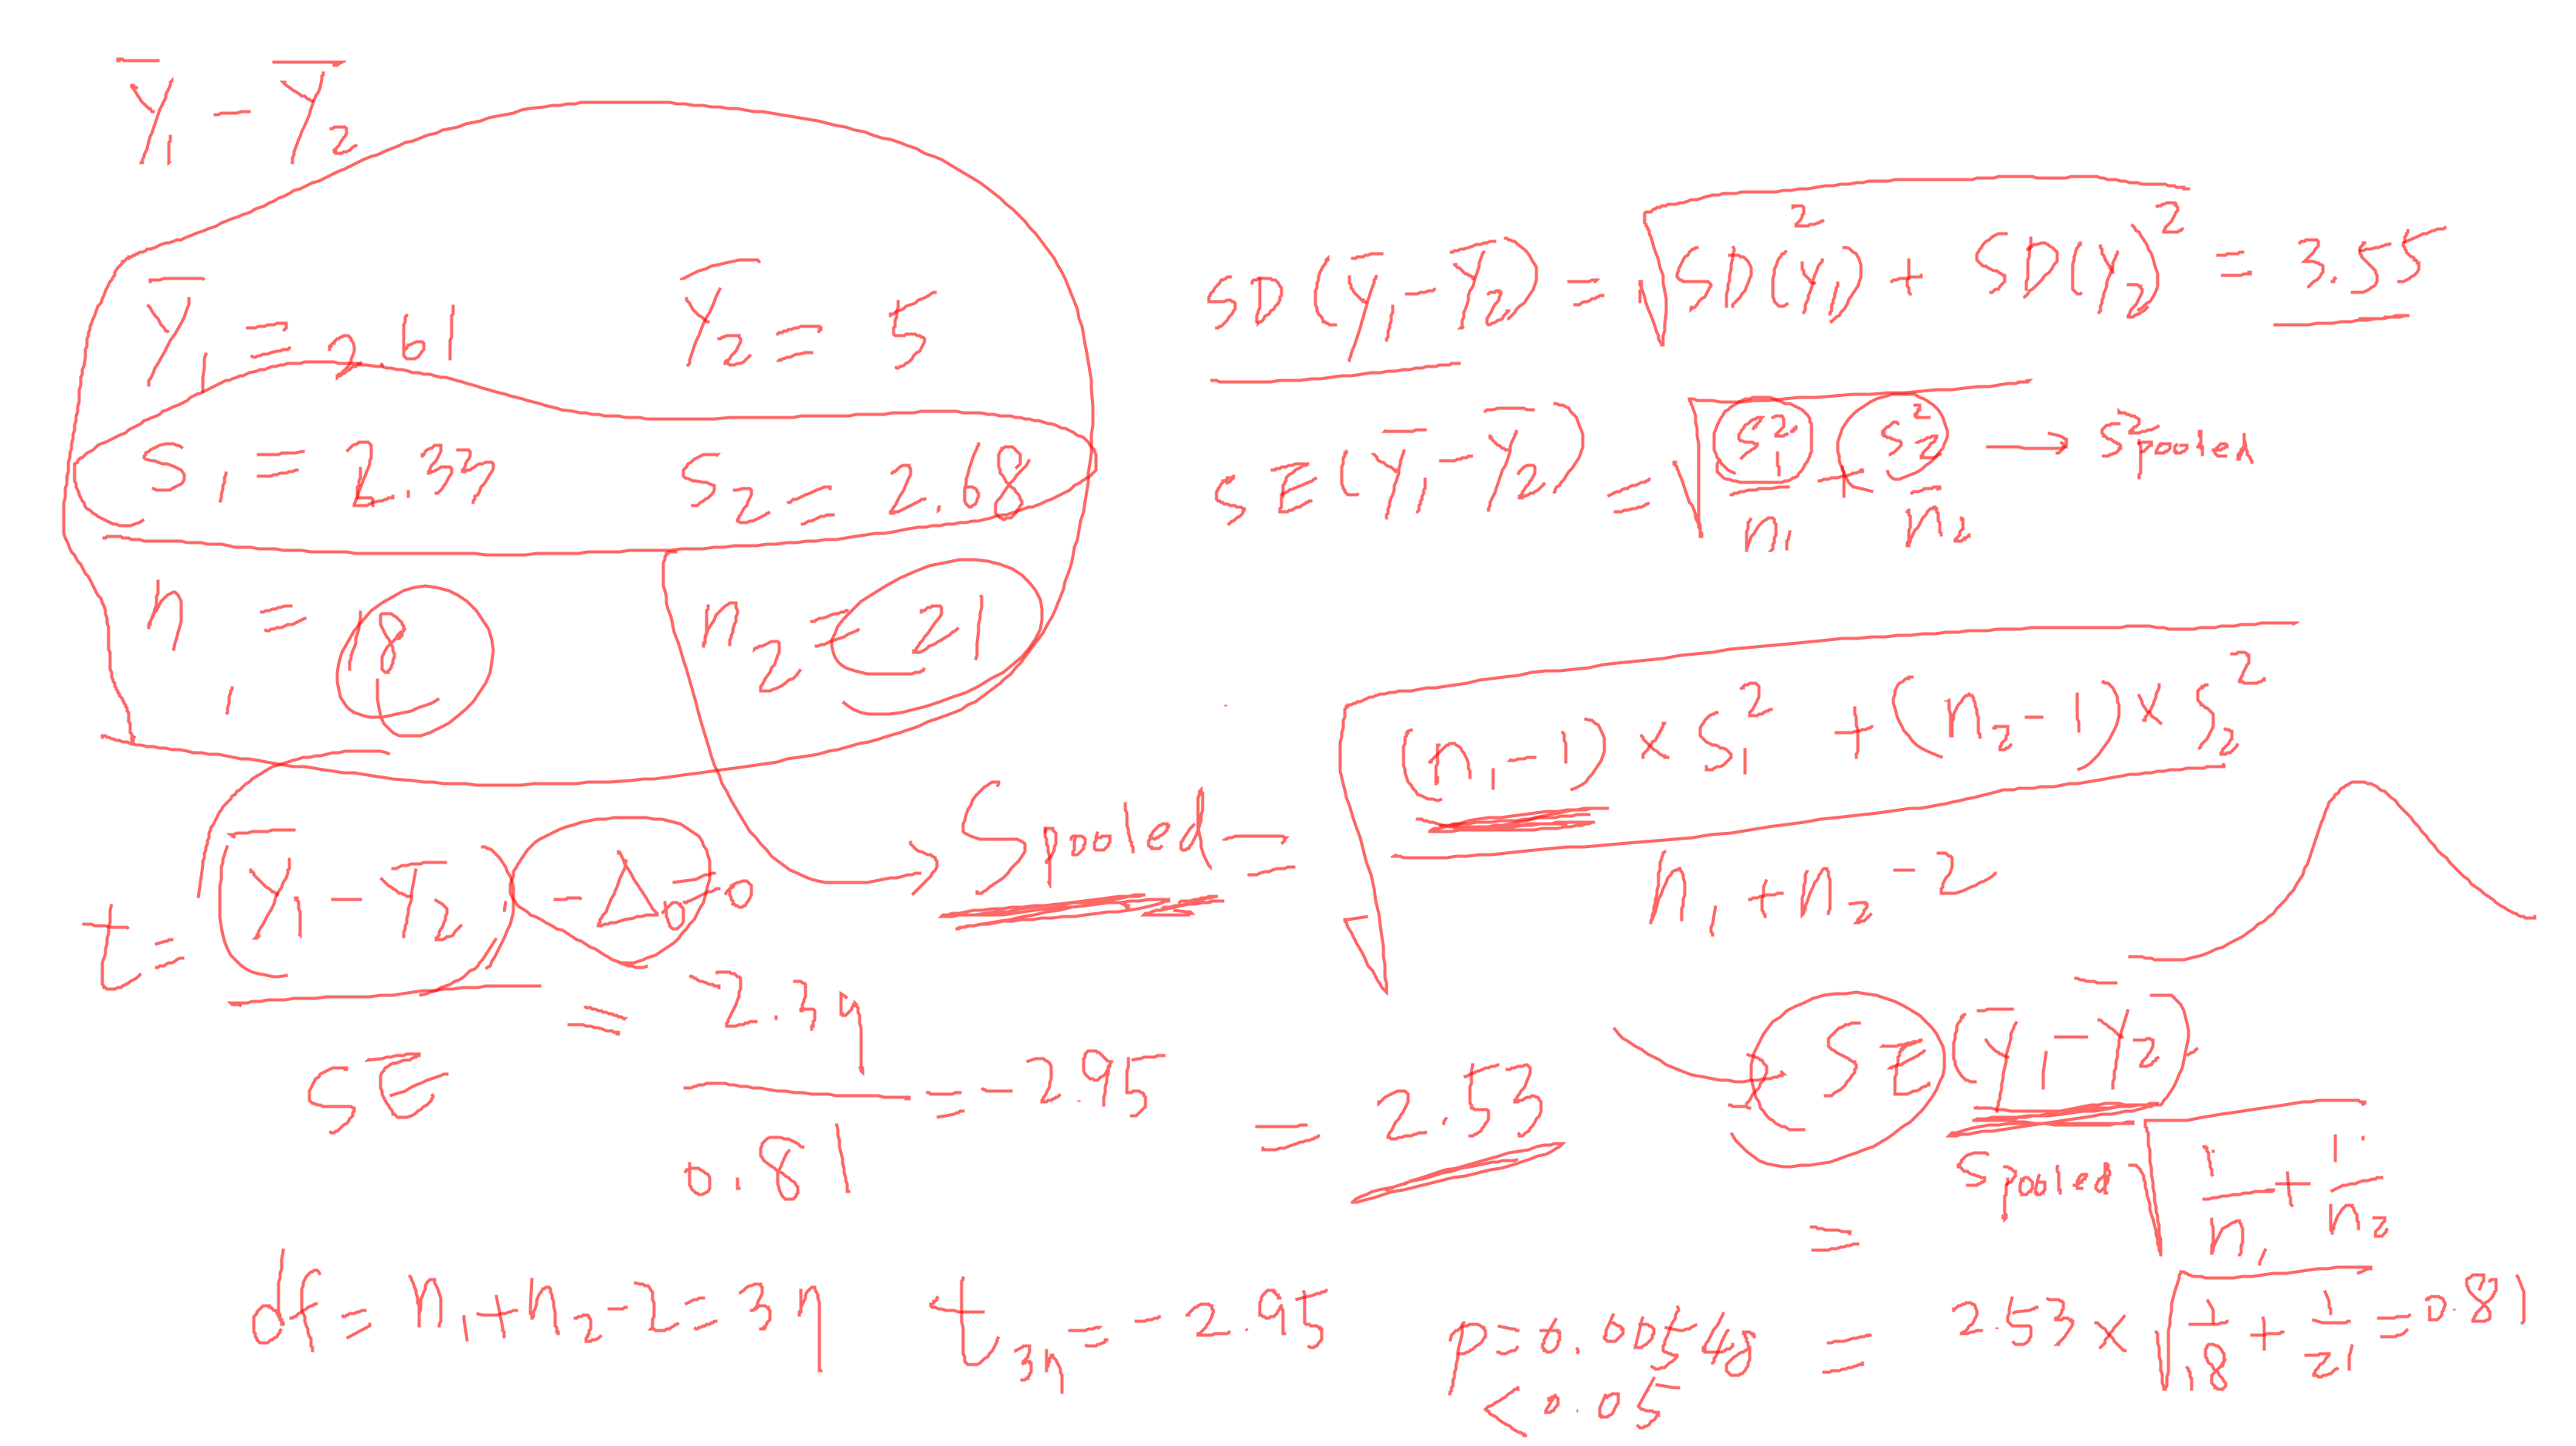 Y̅₁ - Y̅₂
Y̅₁ = 2.61 Y̅₂ = 5
S₁ = 2.33 S₂ = 2.68
n₁ = 18 n₂ = 21
SD(Y̅₁ - Y̅₂) = √(SD(Y₁)² + SD(Y₂)²) = 3.55
SE(Y̅₁ - Y̅₂) = √(S₁²/n₁ + S₂²/n₂) → S²pooled
Spooled = √(((n₁-1) × S₁² + (n₂-1) × S₂²)/(n₁+n₂-2))
= 2.53
t = ((Y̅₁ - Y̅₂) - Δ₀=0)/SE = -2.39/0.81 = -2.95
SE(Y̅₁ - Y̅₂)
= Spooled √(1/n₁ + 1/n₂)
= 2.53 × √(1/18 + 1/21) = 0.81
df = n₁+n₂-2 = 37 t₃₇ = -2.95 p = 0.00548
< 0.05